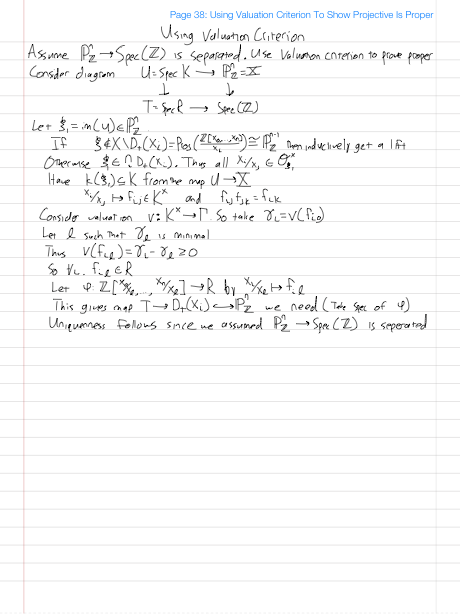 Page 38: Using Valuation Criterion To Show Projective Is Proper
Using Valuation Criterion
Assume ℙⁿ_ℤ → Spec(ℤ) is separated. Use Valuation criterion to prove proper
Consider diagram U = Spec K → ℙⁿ_ℤ = X
↓ ↓
T = Spec R → Spec(ℤ)
Let ξ₁ = im(U) ∈ ℙⁿ_ℤ
If ξ ∈ X \ D₊(Xᵢ) = Proj(ℤ[x₀,...,xₙ]/xᵢ) ≅ ℙⁿ⁻¹_ℤ then inductively get a lift
Otherwise ξ ∈ ∩ D₊(Xᵢ). Thus all xᵢ/xⱼ ∈ O^×_ξ₁
Have k(ξ₁) ⊆ K from the map U → X
xᵢ/xⱼ ↦ fᵢⱼ ∈ K^× and fᵢⱼ fⱼₖ = fᵢₖ
Consider valuation v: K^× → Γ. So take γᵢ = v(fᵢ₀)
Let l such that γ_l is minimal
Thus v(f_il) = γᵢ - γ_l ≥ 0
So ∀i. f_il ∈ R
Let φ: ℤ[x₀/x_l, ..., xₙ/x_l] → R by xᵢ/x_l ↦ f_il
This gives map T → D₊(Xᵢ) ↪ ℙⁿ_ℤ we need (Take Spec of φ)
Uniqueness follows since we assumed ℙⁿ_ℤ → Spec(ℤ) is seperated